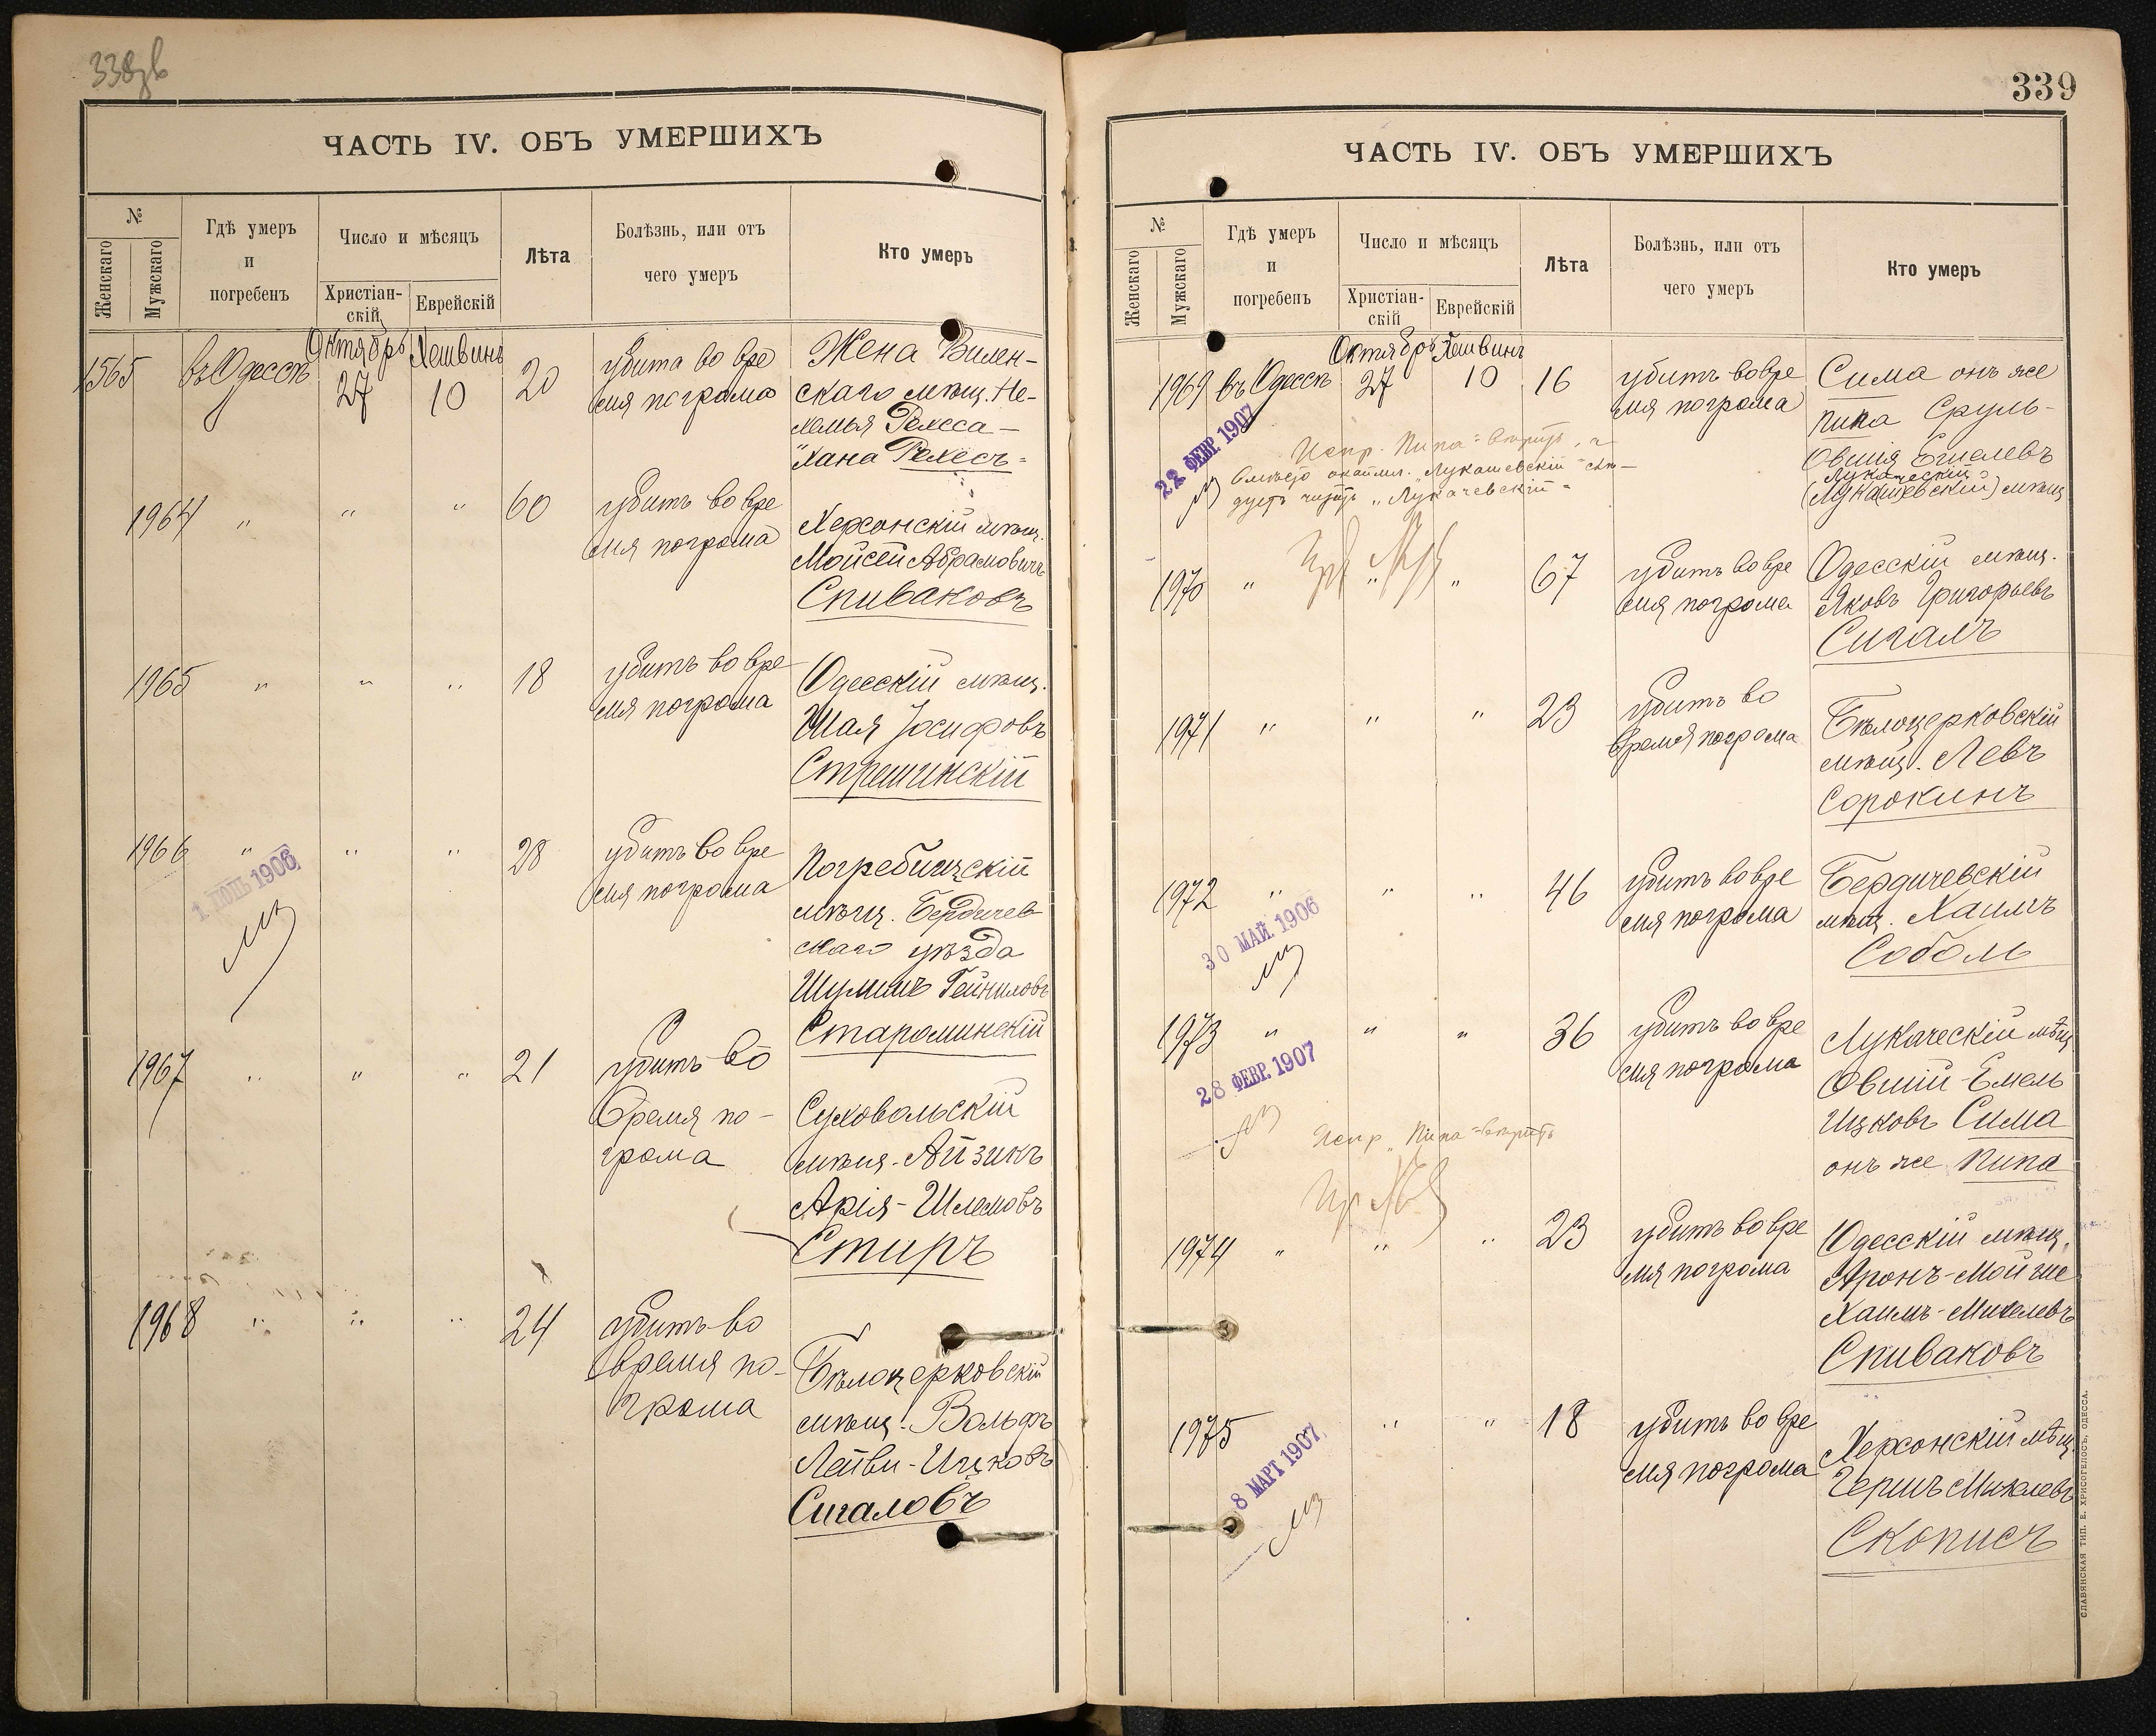 338
ЧАСТЬ IV. ОБЪ УМЕРШИХЪ
№
Женскаго
Мужскаго
Гдѣ умеръ
и
погребенъ
Число и мѣсяцъ
Христіан-
скій
Еврейскій
Лѣта
Болѣзнь, или отъ
чего умеръ
Кто умеръ
1565
въ Одессѣ
Октябрь
27
Хешвинъ
10
20
убита во вре
мя погрома
Жена Вилен-
скаго мѣщ. Не-
хемья Рехеса-
Хана Рехесъ
1964
"
"
"
60
убитъ во вре
мя погрома
Херсонскій мѣщ.
Мойсей Абрамовичъ
Спиваковъ
1965
"
"
"
18
убитъ во вре
мя погрома
Одесскій мѣщ.
Шая Іосифовъ
Стрешинскій
1966
"
"
"
28
убитъ во вре
мя погрома
Погребищскій
мѣщ. Бердичев
скаго уѣзда
Шулимъ
Староминскій
1906
1967
"
"
"
21
убитъ во
время по-
грома
Суховольскій
мѣщ. Айзикъ
Арія-Шлемовъ
Стиръ
1968
"
"
"
24
убитъ во
время по-
грома
Бѣлоцерковскій
мѣщ. Вольфъ
Лейви-Ицковъ
Сигаловъ
339
ЧАСТЬ IV. ОБЪ УМЕРШИХЪ
№
Женскаго
Мужскаго
Гдѣ умеръ
и
погребенъ
Число и мѣсяцъ
Христіан-
скій
Еврейскій
Лѣта
Болѣзнь, или отъ
чего умеръ
Кто умеръ
1969
въ Одессѣ
Октябрь
27
Хешвинъ
10
16
убитъ во вре
мя погрома
Сима онъ же
Пипа Сруль-
Овшія
Лукаческій
(Лукашевскій) мѣщ
22 ФЕВР. 1907
Испр. Пипа = вѣрить, и
вмѣсто "Лукашевскій" слѣ-
дуетъ читать "Лукачевскій"
1970
"
"
"
67
убитъ во вре
мя погрома
Одесскій мѣщ.
Яковъ Григорьевъ
Сигалъ
1971
"
"
"
23
убитъ во
время погрома
Бѣлоцерковскій
мѣщ. Левъ
Сорокинъ
1972
"
"
"
46
убитъ во вре
мя погрома
Бердичевскій
мѣщ. Хаимъ
Соболь
30 МАЙ. 1906
1973
"
"
"
36
убитъ во вре
мя погрома
Лукаческій мѣщ
Овшій-Емель
Ицковъ Сима
онъ же Пипа
28 ФЕВР. 1907
Испр. "Пипа" = вѣрить
1974
"
"
"
23
убитъ во вре
мя погрома
Одесскій мѣщ.
Аронъ-Мойше
Хаимъ-Михелевъ
Спиваковъ
1975
"
"
18
убитъ во вре
мя погрома
Херсонскій мѣщ.
Гершъ Михелевъ
Скописъ
8 МАРТ 1907
СЛАВЯНСКАЯ ТИП. Е. ХРИСОГЕЛОСЪ, ОДЕССА.